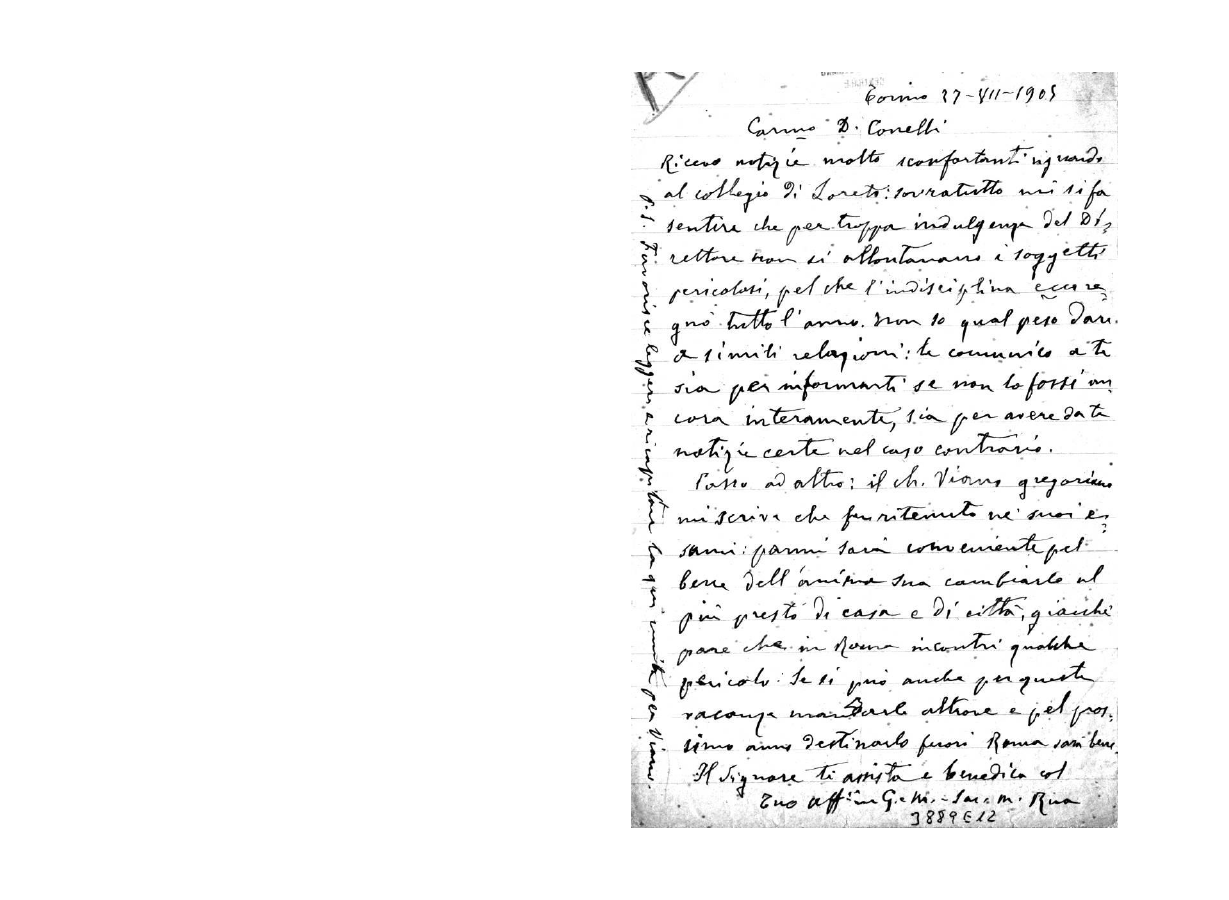 Torino 27-VII-1905
Carmo D. Conelli
Ricevo notizie molto sconfortanti riguardo
al collegio di Loreto: sovratutto mi si fa
sentire che per troppa indulgenza del Di-
rettore non si allontanano i soggetti
pericolosi, pel che l'indisciplina ecc. re-
gnò tutto l'anno. Non so qual peso dare
a simili relazioni: le comunico a te
sia per informarti se non lo fossi an-
cora interamente, sia per avere da te
notizie certe nel caso contrario.
Passo ad altro: il ch. Viano gregoriano
mi scrive che fu ritenuto ne' suoi e-
sami: parmi sarà conveniente pel
bene dell'anima sua cambiarlo al
più presto di casa e di città, giacchè
pare che in Roma incontri qualche
pericolo. Se si può anche per queste
vacanze mandarlo altrove e pel pros-
simo anno destinarlo fuori Roma sarà bene.
Il Signore ti assista e benedica col
Tuo aff.mo in G. e M. - Sac. M. Rua
3889E12
P.S. Favorisci leggere e ricapitare la qui unita per Viano.